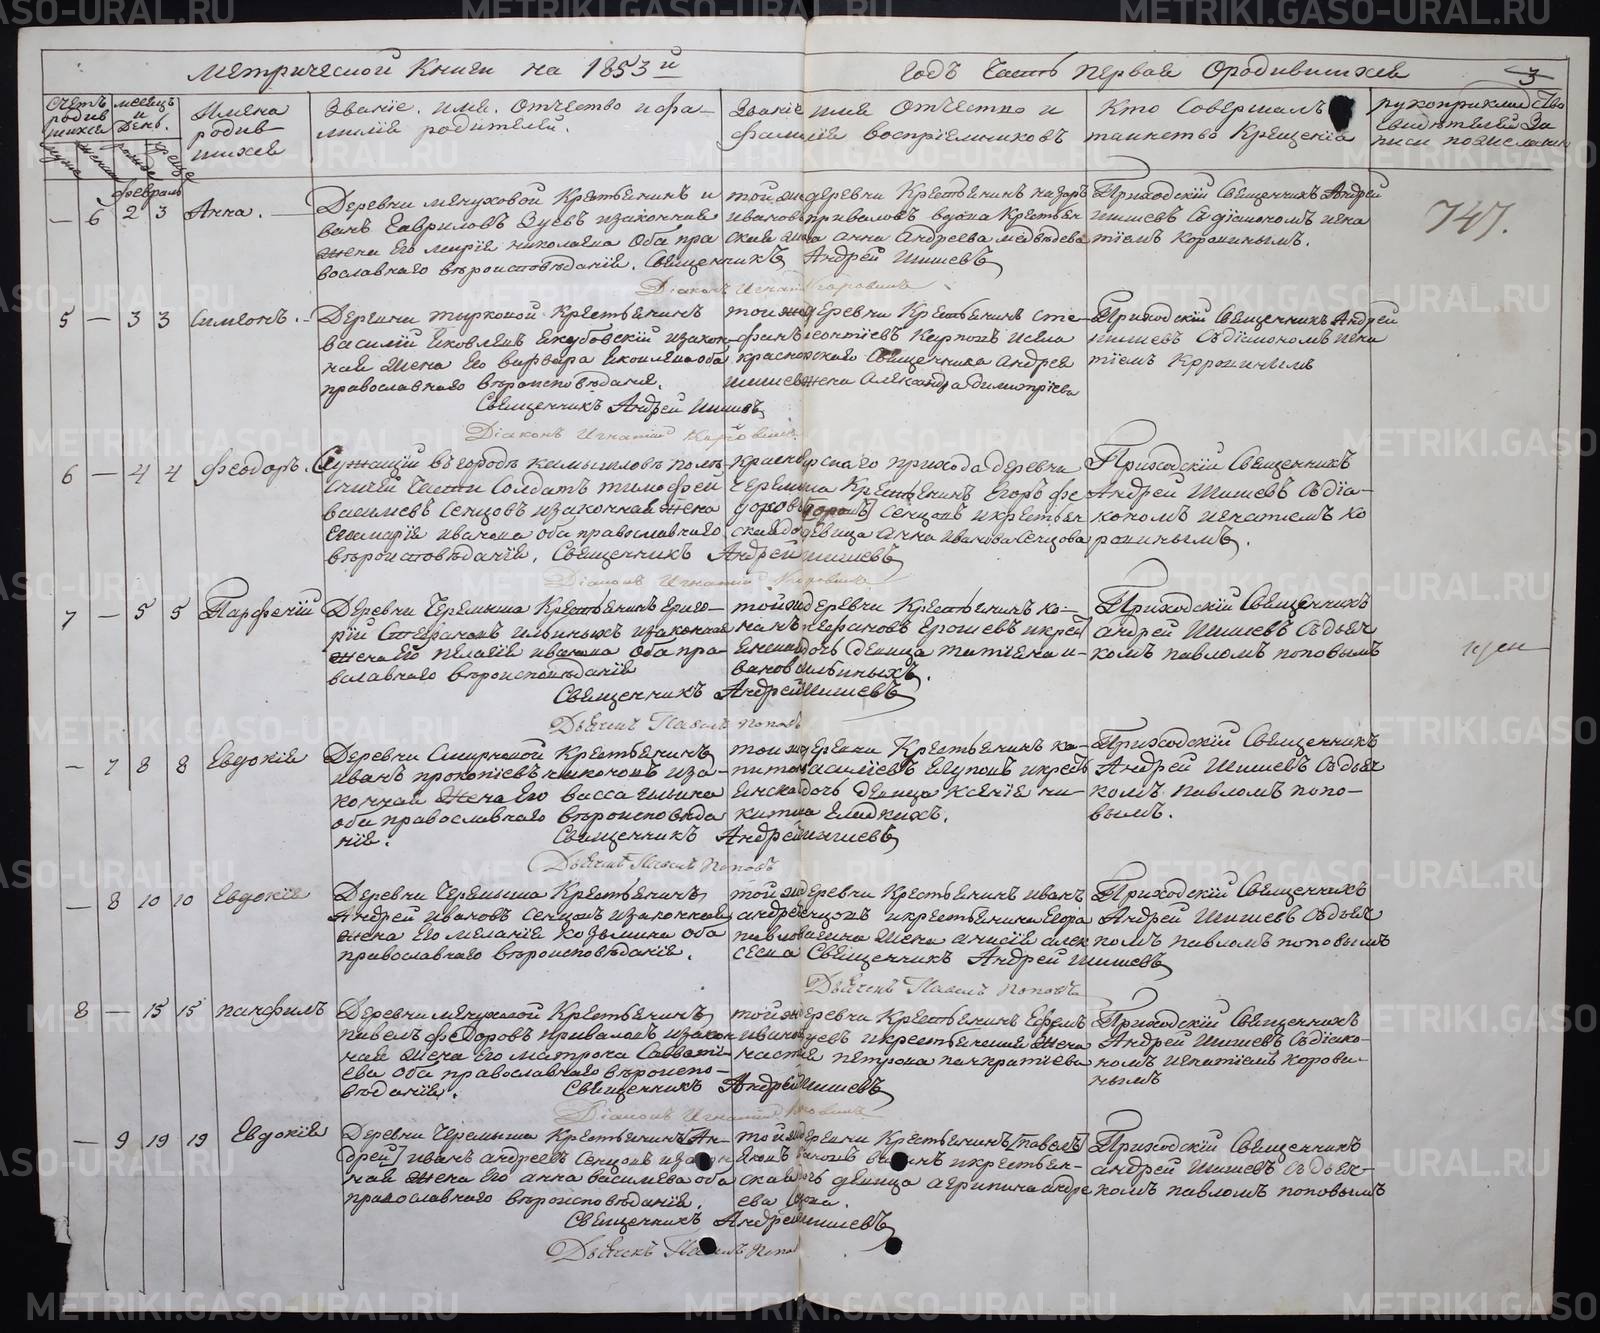 Метрической Книги на 1853й годъ Часть первая Ородившихся
3
Счетъ родившихся
мужес
женск
месецъ и День.
рожде
креще
Имена родившихся
Званіе. имя. Отчество и фамилія родителей.
Званіе имя Отчество и фамилія воспріемниковъ
Кто Совершалъ таинство Крещенія
рукоприкладство свидетелей записи пожеланию
февраль
— 6 2 3 Анна. —
Деревни мачуховой Крестьянинъ и
ванъ Гавриловъ Зуевъ изаконная
жена Его марія николаева Оба пра
вославнаго вѣроисповѣданія. Священникъ Андрей Шишевъ
Діаконъ Игнатій Коровинъ
той же деревни Крестьянинъ назаръ
ивановъ приваловъ вдова Крестьян
ская жена анна Андреева медведева
Приходскій Священникъ Андрей
шишевъ Съ діакономъ игна
тіемъ Коровинымъ.
747.
5 — 3 3 Симеонъ. —
Деревни тырковой Крестьянинъ
василій Яковлевъ Якубовскій изакон
ная жена Его варвара Яковлева оба
православнаго вѣроисповѣданія.
Священникъ Андрей Шишевъ
Діаконъ Игнатій Коровинъ.
той же деревни Крестьянинъ сте
фанъ леонтіевъ Карповъ исела
краснояскаго Священника Андрея
шишева жена Александра димитріева
Приходскій Священникъ Андрей
шишевъ Съ діакономъ игна
тіемъ Коровинымъ
6 — 4 4 Феодоръ.
Служащій въ городѣ камышловѣ поли
ской части Солдатъ тимофей
василіевъ Сенцовъ изаконная жена
Его марія иванова оба православнаго
вѣроисповѣданія. Священникъ Андрей шишевъ
Діаконъ Игнатій Коровинъ
краснояскаго прихода деревни
черемыша Крестьянинъ Егоръ фе
доровъ Сенцовъ и крестьян
ская дочь девица анна иванова Сенцова
Приходскій Священникъ
Андрей Шишевъ Съ діа
кономъ игнатіемъ Ко
ровинымъ.
7 — 5 5 Парфеній
Деревни Черемыша Крестьянинъ григо
рій Стефановъ ильиныхъ изаконная
жена Его пелагія иванова Оба пра
вославнаго вѣроисповѣданія
Священникъ Андрей шишевъ
Дьячекъ Павелъ поповъ
той же деревни Крестьянинъ ро
манъ стефановъ Ерошевъ и кресть
янская дочь девица татіяна и
ванова ильиныхъ.
Приходскій Священникъ
андрей Шишевъ Съ дьяч
комъ павломъ поповымъ
— 7 8 8 Евдокія
Деревни Смирновой Крестьянинъ
иванъ прокопіевъ никоновъ иза
конная жена Его васса ильина
оба православнаго вѣроисповѣда
нія. Священникъ Андрей шишевъ
Дьячекъ Павелъ поповъ
той же деревни Крестьянинъ ка
питонъ василіевъ Елуповъ и кресть
янская дочь девица Ксенія ни
китина Гладкихъ.
Приходскій Священникъ
Андрей Шишевъ Съ дьяч
комъ павломъ попо
вымъ.
— 8 10 10 Евдокія
Деревни Черемыша Крестьянинъ
Андрей ивановъ Сенцовъ изаконная
жена Его меланія Козьмина оба
православнаго вѣроисповѣданія.
той же деревни Крестьянинъ иванъ
андреевъ Сенцовъ и крестьянина Егора
павлова жена анисія алек
сеева Священникъ Андрей Шишевъ
Дьячекъ Павелъ поповъ
Приходскій Священникъ
Андрей Шишевъ Съ дьяч
комъ павломъ поповымъ
8 — 15 15 панфилъ
Деревни мачуховой Крестьянинъ
павелъ феодоровъ приваловъ изакон
ная жена Его матрона Савваті
ева оба православнаго вѣроиспо
вѣданія. Священникъ Андрей шишевъ
Діаконъ Игнатій Коровинъ
той же деревни Крестьянинъ Ефемъ
ивановъ Зуевъ и крестьянина жена
настасія петрова панкратіева
Приходскій Священникъ
Андрей Шишевъ Съ діако
номъ игнатіемъ Корови
нымъ
— 9 19 19 Евдокія
Деревни Черемыша Крестьянинъ [Ан
дрей] иванъ андреевъ Сенцовъ изакон
ная жена Его анна василіева оба
православнаго вѣроисповѣданія.
Священникъ Андрей шишевъ
Дьячекъ Павелъ Попо
той же деревни Крестьянинъ [павелъ]
и крестьян
ская дочь девица агрипина андре
ева
Приходскій Священникъ
андрей Шишевъ Съ дьяч
комъ павломъ поповымъ
METRIKI.GASO-URAL.RU